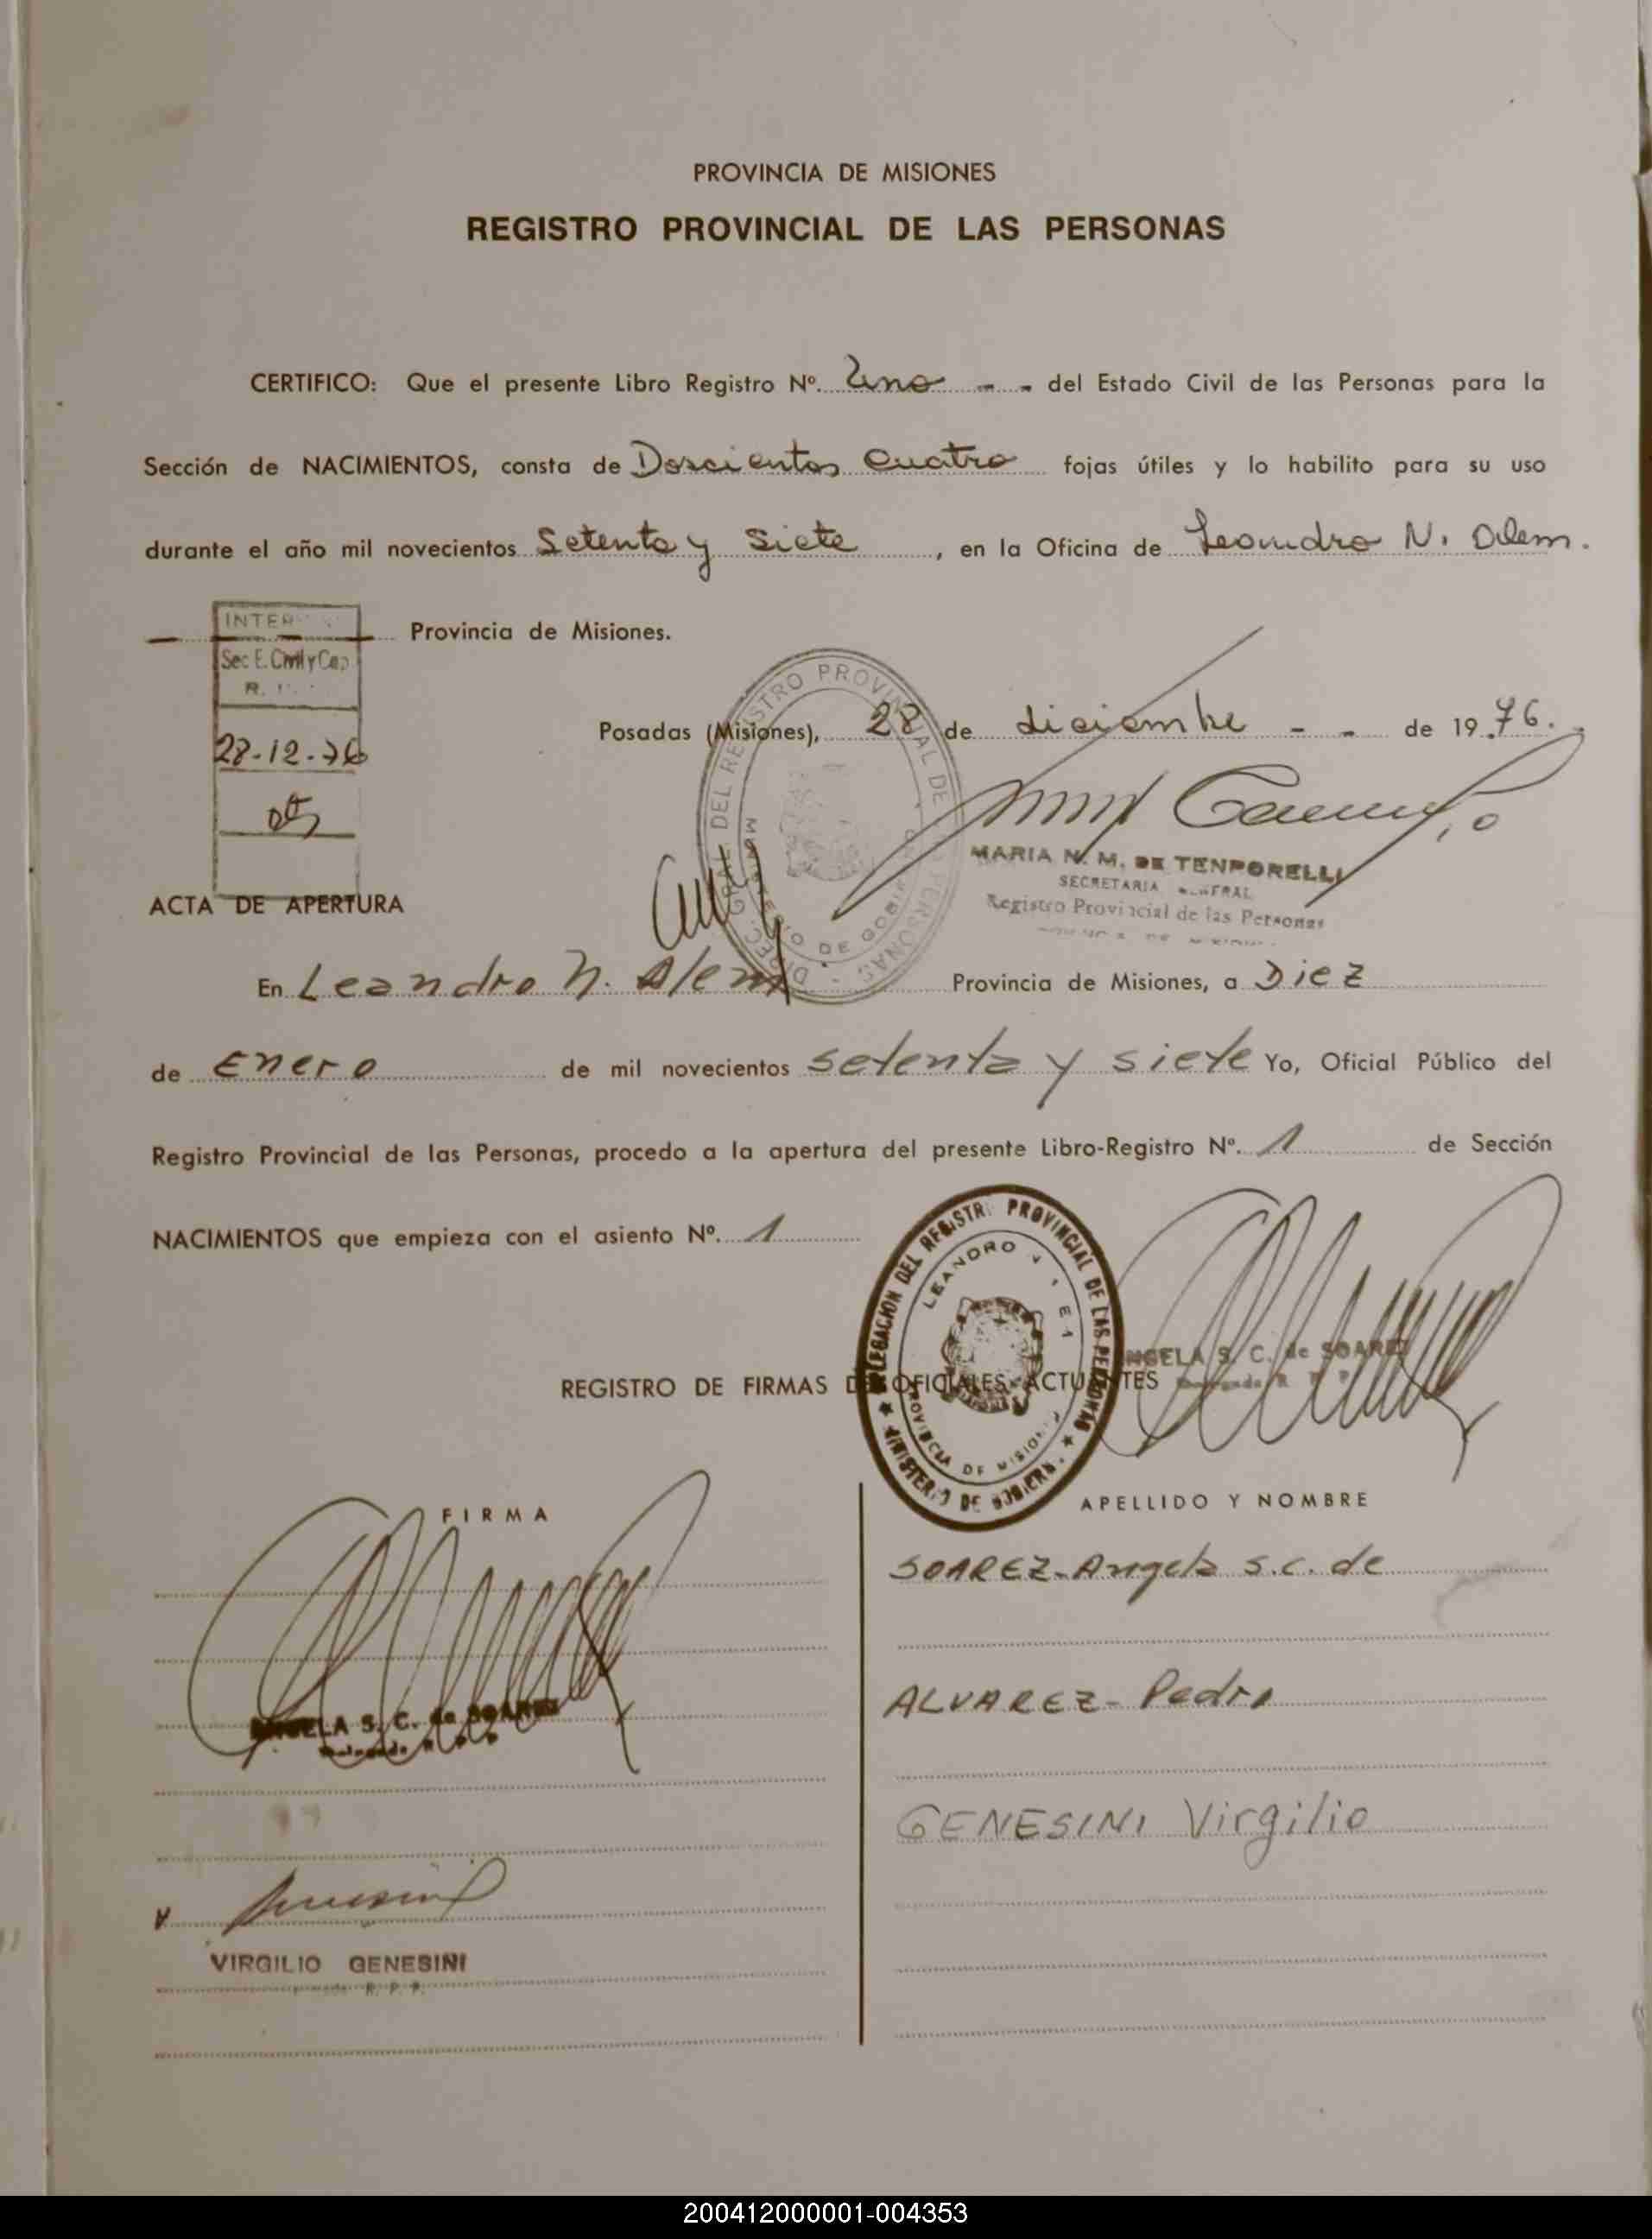 PROVINCIA DE MISIONES
REGISTRO PROVINCIAL DE LAS PERSONAS
CERTIFICO: Que el presente Libro Registro Nº. Uno - - del Estado Civil de las Personas para la
Sección de NACIMIENTOS, consta de Doscientos Cuatro fojas útiles y lo habilito para su uso
durante el año mil novecientos Setenta y Siete, en la Oficina de Leandro N. Alem.
Provincia de Misiones.
Sec E. Civil y Cap
R.
28-12-76
Posadas (Misiones), 28 de diciembre - - de 1976.
DIREC. GRAL. DEL REGISTRO PROVINCIAL DE LAS PERSONAS
MINISTERIO DE GOBIERNO
MARIA N. M. DE TENPORELLI
SECRETARIA GENERAL
Registro Provincial de las Personas
ACTA DE APERTURA
En Leandro N. Alem Provincia de Misiones, a Diez
de Enero de mil novecientos setenta y siete Yo, Oficial Público del
Registro Provincial de las Personas, procedo a la apertura del presente Libro-Registro Nº. 1 de Sección
NACIMIENTOS que empieza con el asiento Nº. 1
DELEGACION DEL REGISTRO PROVINCIAL DE LAS PERSONAS
LEANDRO
PROVINCIA DE MISIONES
MINISTERIO DE GOBIERNO
ANGELA S. C. de SOAREZ
REGISTRO DE FIRMAS DE OFICIALES ACTUANTES
FIRMA
APELLIDO Y NOMBRE
SOAREZ-Angela S.C. de
ALVAREZ- Pedro
ANGELA S. C. de SOAREZ
GENESINI Virgilio
VIRGILIO GENESINI
R. P. P.
200412000001-004353